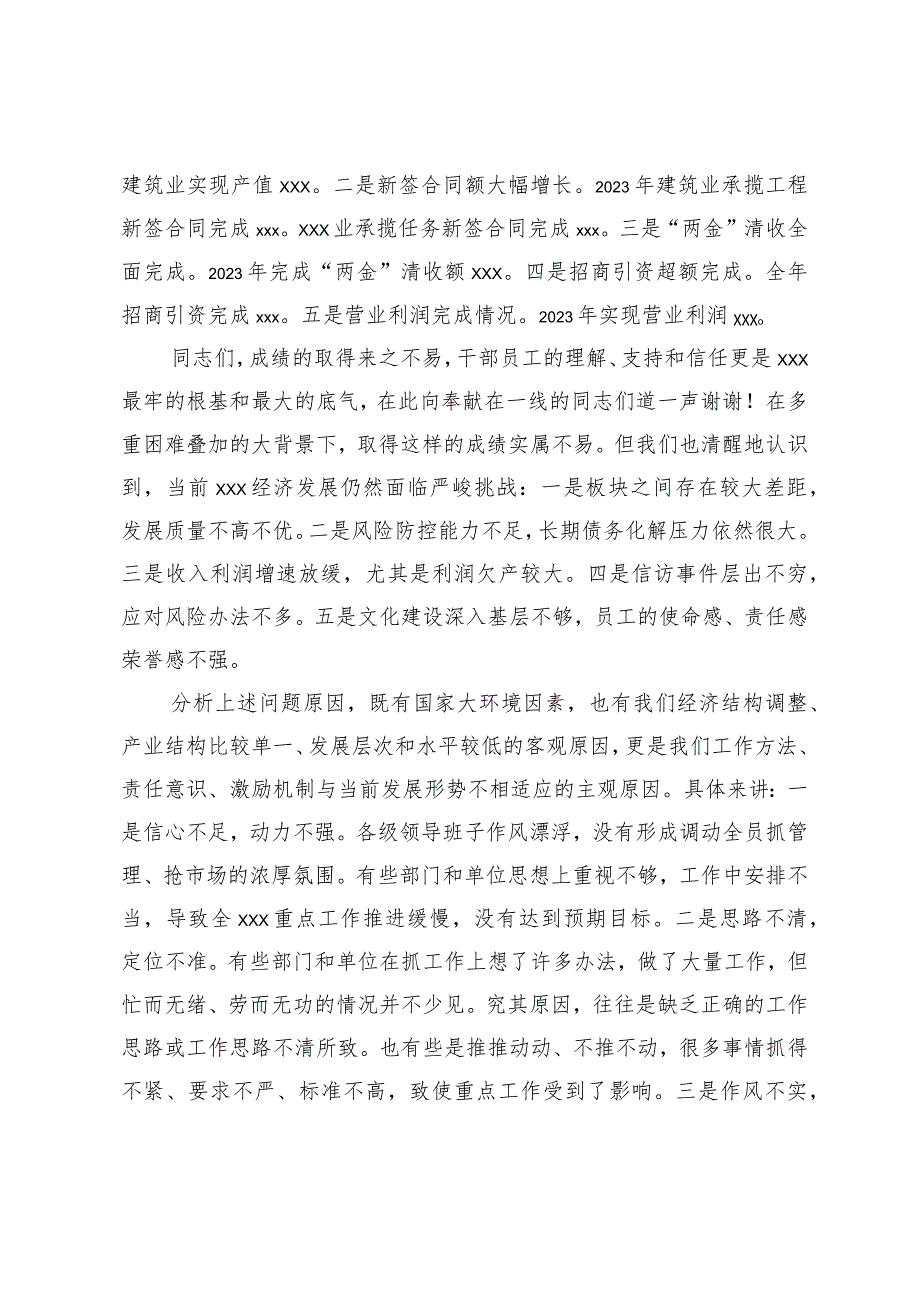 建筑业实现产值 XXX。二是新签合同额大幅增长。2023 年建筑业承揽工程
新签合同完成 xxx。XXX 业承揽任务新签合同完成 xxx。三是“两金”清收全
面完成。2023 年完成“两金”清收额 XXX。四是招商引资超额完成。全年
招商引资完成 xxx。五是营业利润完成情况。2023 年实现营业利润 χχχ。
同志们，成绩的取得来之不易，干部员工的理解、支持和信任更是 XXX
最牢的根基和最大的底气，在此向奉献在一线的同志们道一声谢谢！在多
重困难叠加的大背景下，取得这样的成绩实属不易。但我们也清醒地认识
到，当前 XXX 经济发展仍然面临严峻挑战：一是板块之间存在较大差距，
发展质量不高不优。二是风险防控能力不足，长期债务化解压力依然很大。
三是收入利润增速放缓，尤其是利润欠产较大。四是信访事件层出不穷，
应对风险办法不多。五是文化建设深入基层不够，员工的使命感、责任感
荣誉感不强。
分析上述问题原因，既有国家大环境因素，也有我们经济结构调整、
产业结构比较单一、发展层次和水平较低的客观原因，更是我们工作方法、
责任意识、激励机制与当前发展形势不相适应的主观原因。具体来讲：一
是信心不足，动力不强。各级领导班子作风漂浮，没有形成调动全员抓管
理、抢市场的浓厚氛围。有些部门和单位思想上重视不够，工作中安排不
当，导致全 XXX 重点工作推进缓慢，没有达到预期目标。二是思路不清，
定位不准。有些部门和单位在抓工作上想了许多办法，做了大量工作，但
忙而无绪、劳而无功的情况并不少见。究其原因，往往是缺乏正确的工作
思路或工作思路不清所致。也有些是推推动动、不推不动，很多事情抓得
不紧、要求不严、标准不高，致使重点工作受到了影响。三是作风不实，